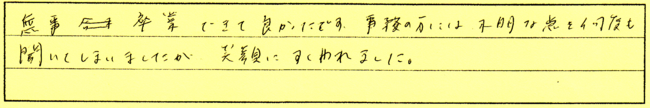 無事卒業できて良かったです。事務の方には不明な点を何度も
聞いてしまいましたが 笑顔にすくわれました。